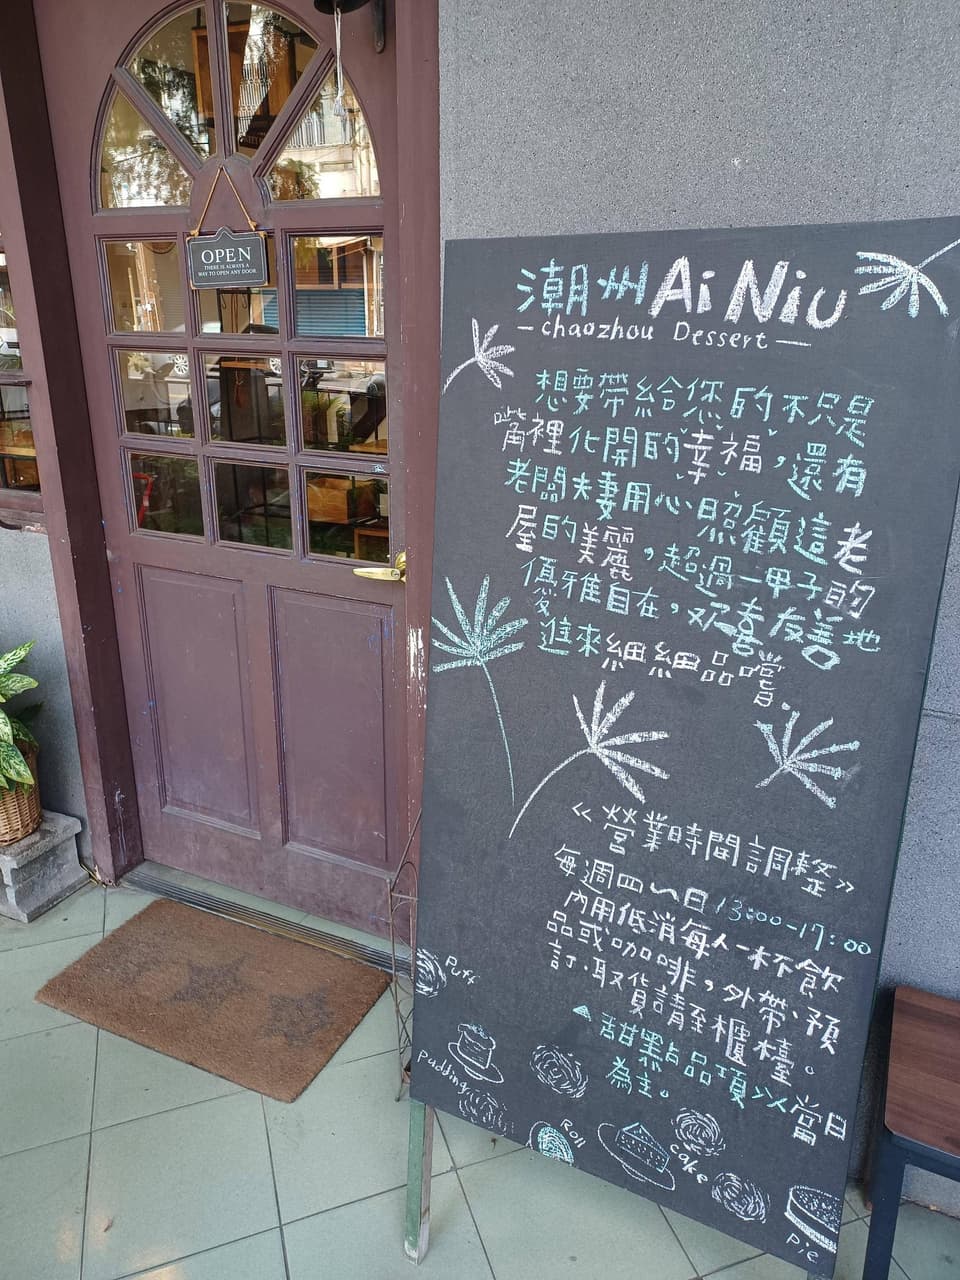 OPEN
THERE IS ALWAYS A
WAY TO OPEN ANY DOOR
潮州 Ai Niu
—chaozhou Dessert—
想要帶給您的不只是
嘴裡化開的幸福，還有
老闆夫妻用心照顧這老
屋的美麗，超過一甲子的
優雅自在，歡喜友善地
進來細細品嚐.
《營業時間調整》
每週四~日13:00-17:00
內用低消每人一杯飲
品或咖啡，外帶、預
訂.取貨請至櫃檯。
▲甜點品項以當日
為主。
Puff
pudding
Roll
cake
pie